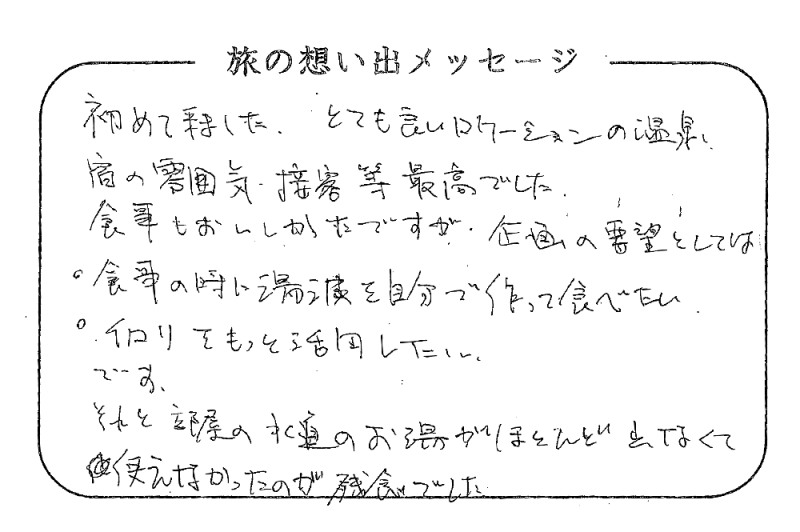 旅の想い出メッセージ
初めて来ました. とても良いロケーションの温泉、
宿の雰囲気・接客等最高でした.
食事もおいしかったですが、企画の要望としては
○食事の時に湯波を自分で作って食べたい.
○イロリをもっと活用したい.
です.
それと部屋の水道のお湯がほとんど出なくて
使えなかったのが残念でした